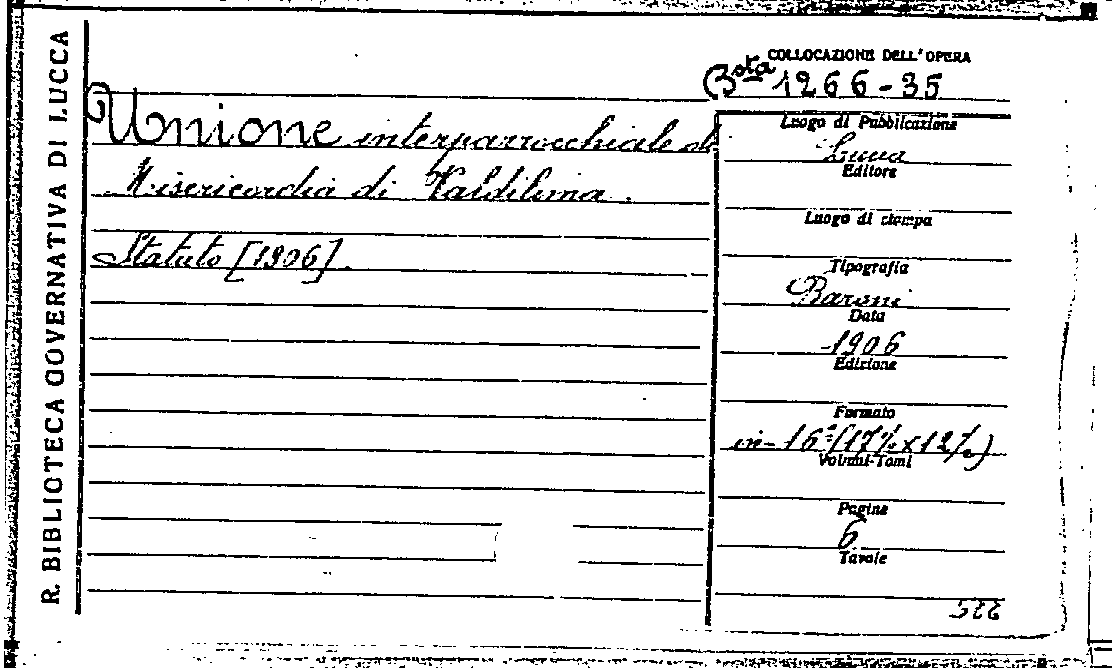 R. BIBLIOTECA GOVERNATIVA DI LUCCA
COLLOCAZIONE DELL'OPERA
Bsta 1266-35
Unione interparrocchiale di
Misericordia di Valdilima.
Statuto [1906].
Luogo di Pubblicazione
Lucca
Editore
Luogo di stampa
Tipografia
Baroni
Data
1906
Edizione
Formato
in-16° (17½ x 12½)
Volumi-Tomi
Pagine
6
Tavole